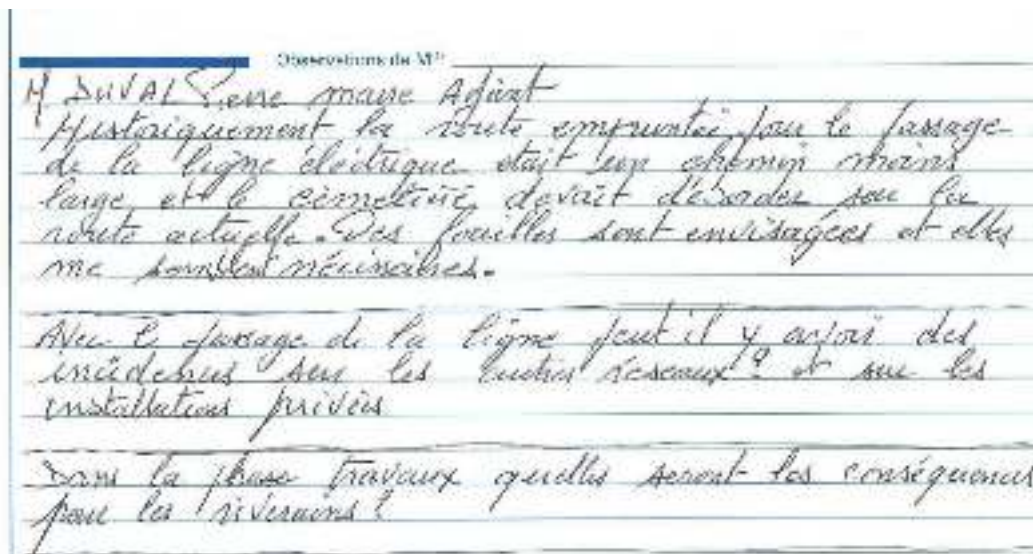 Observations de M(1)
M DUVAL Pierre maire Adjoint
Historiquement la route empruntée pour le passage
de la ligne électrique était un chemin moins
large et le cimetière devait déborder sur la
route actuelle. Des fouilles sont envisagées et elles
me semblent nécessaires.
Avec le passage de la ligne peut il y avoir des
incidences sur les autres réseaux ? et sur les
installations privées
Dans la phase travaux quelles seront les conséquences
pour les riverains ?